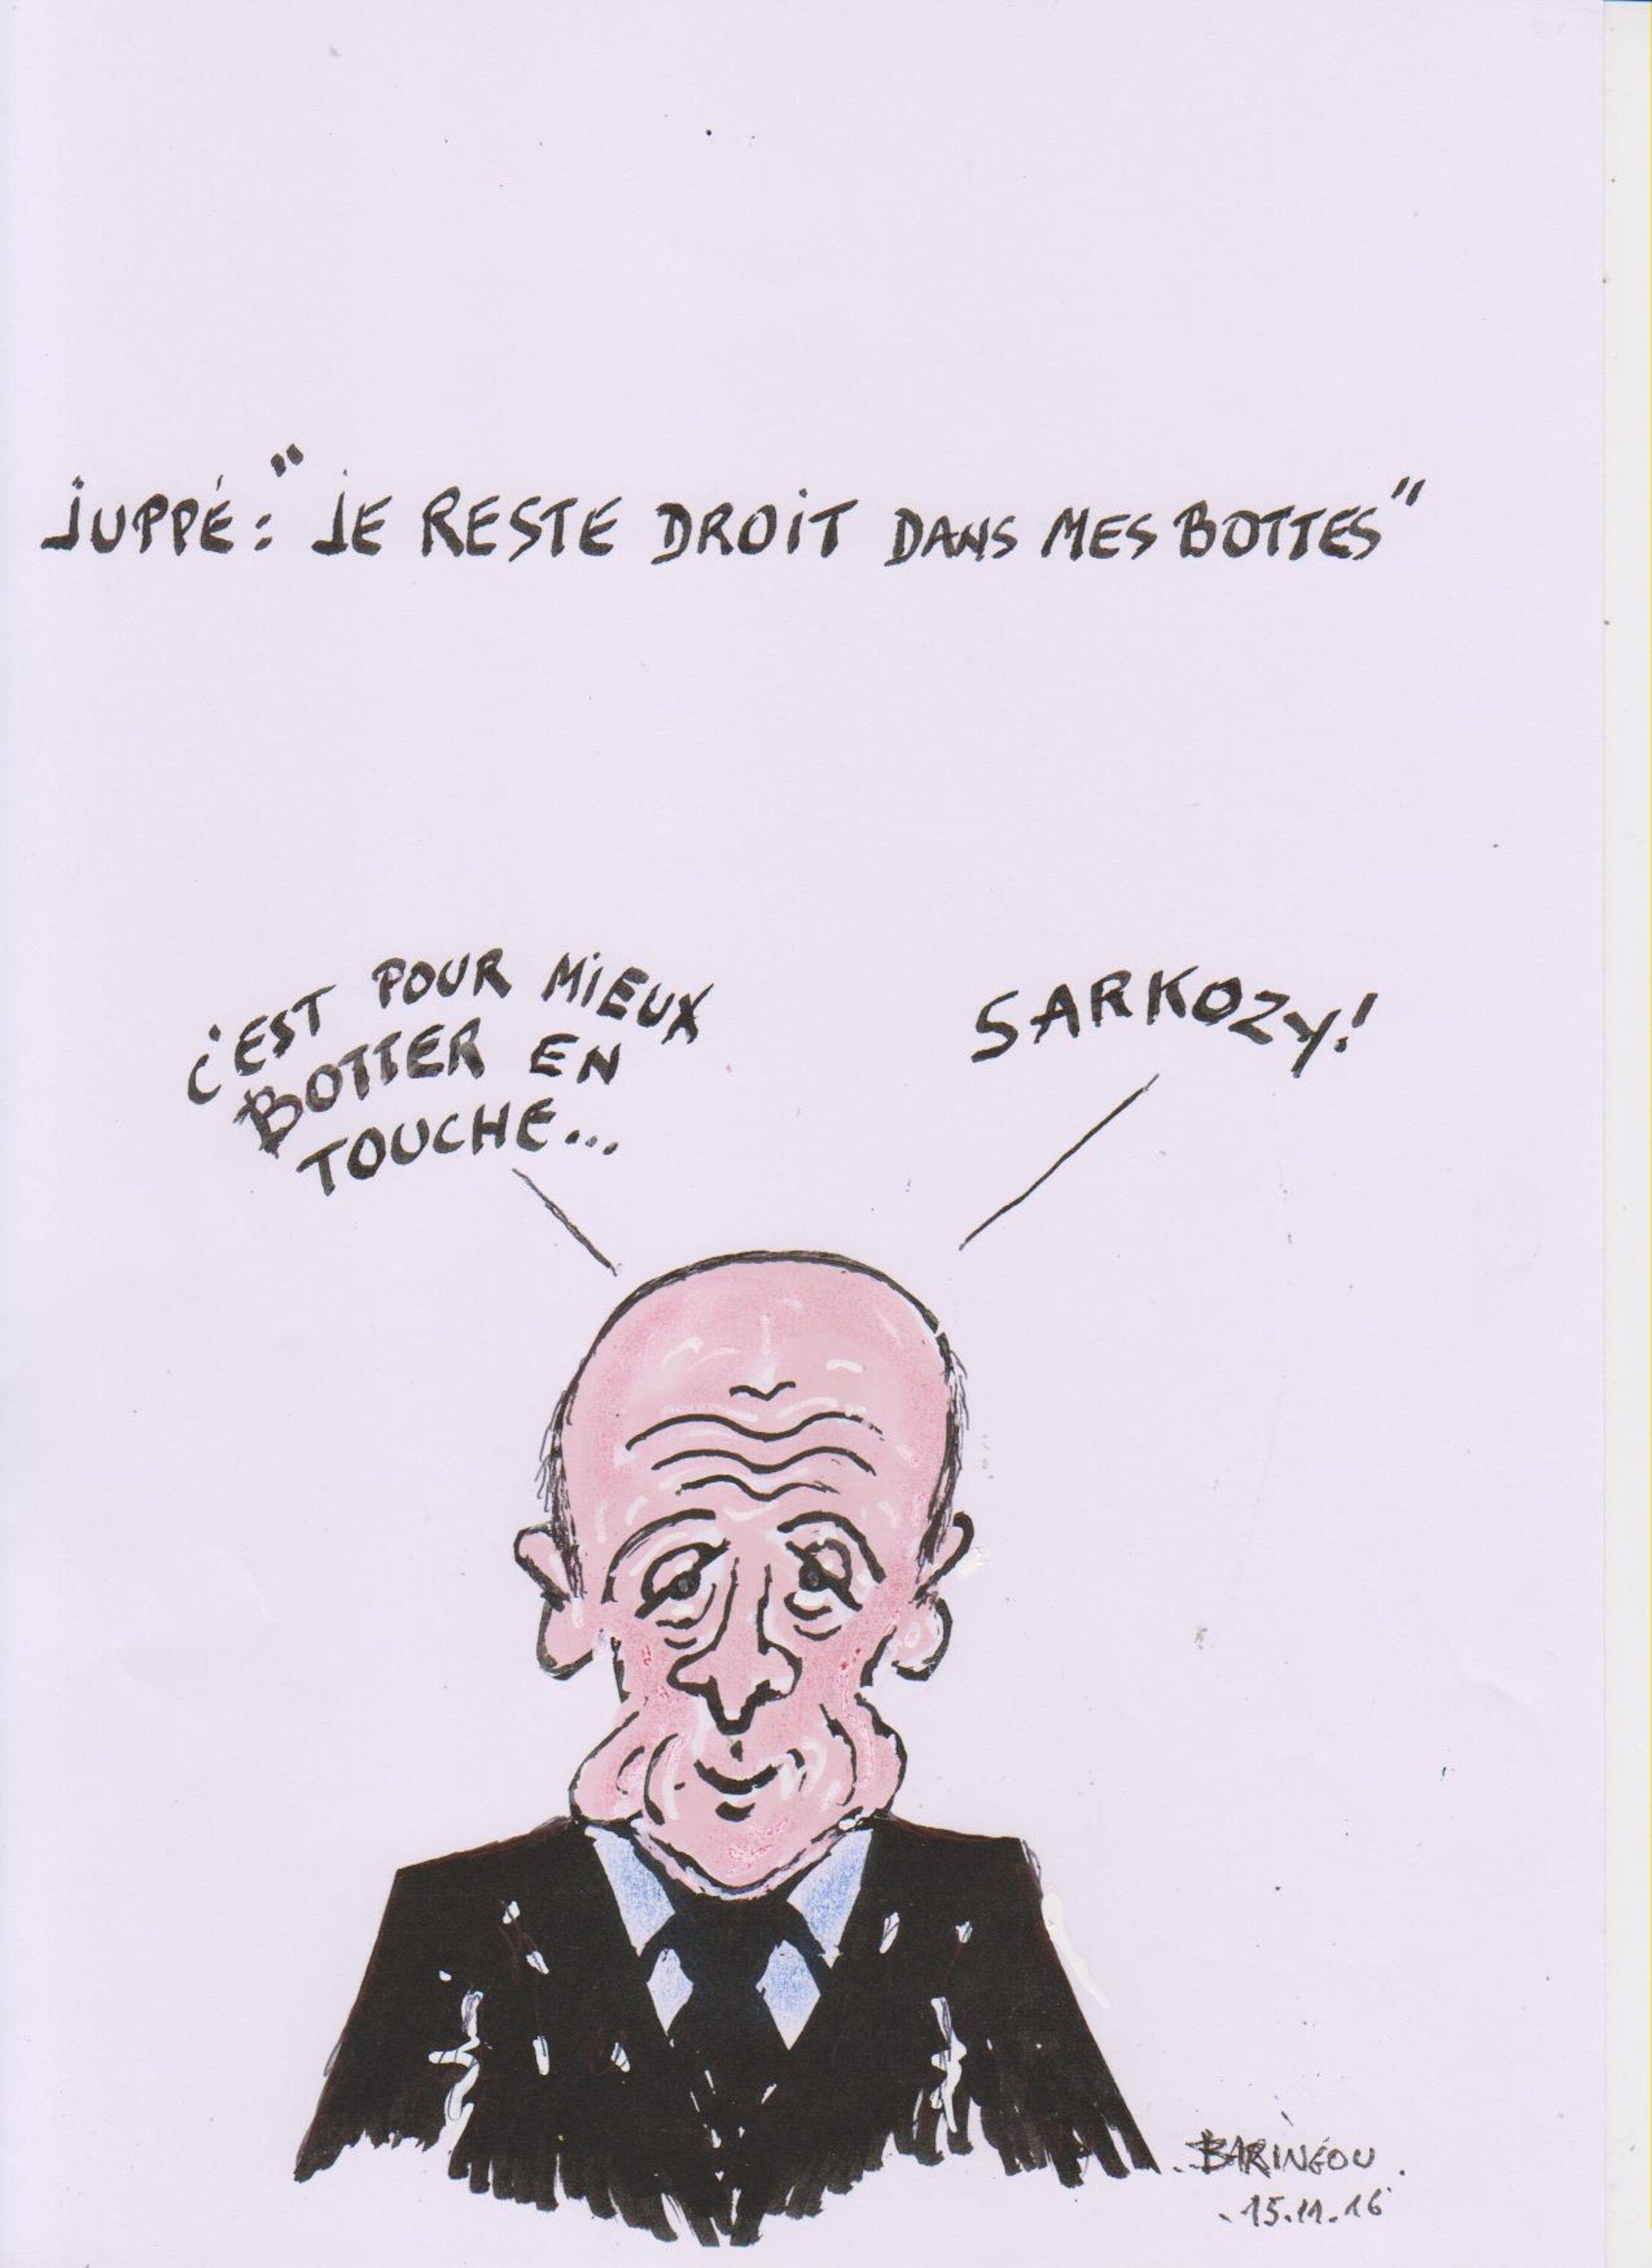 JUPPÉ: "JE RESTE DROIT DANS MES BOTTES"
C'EST POUR MIEUX
BOTTER EN
TOUCHE...
SARKOZY!
BARINGOU.
15.11.16